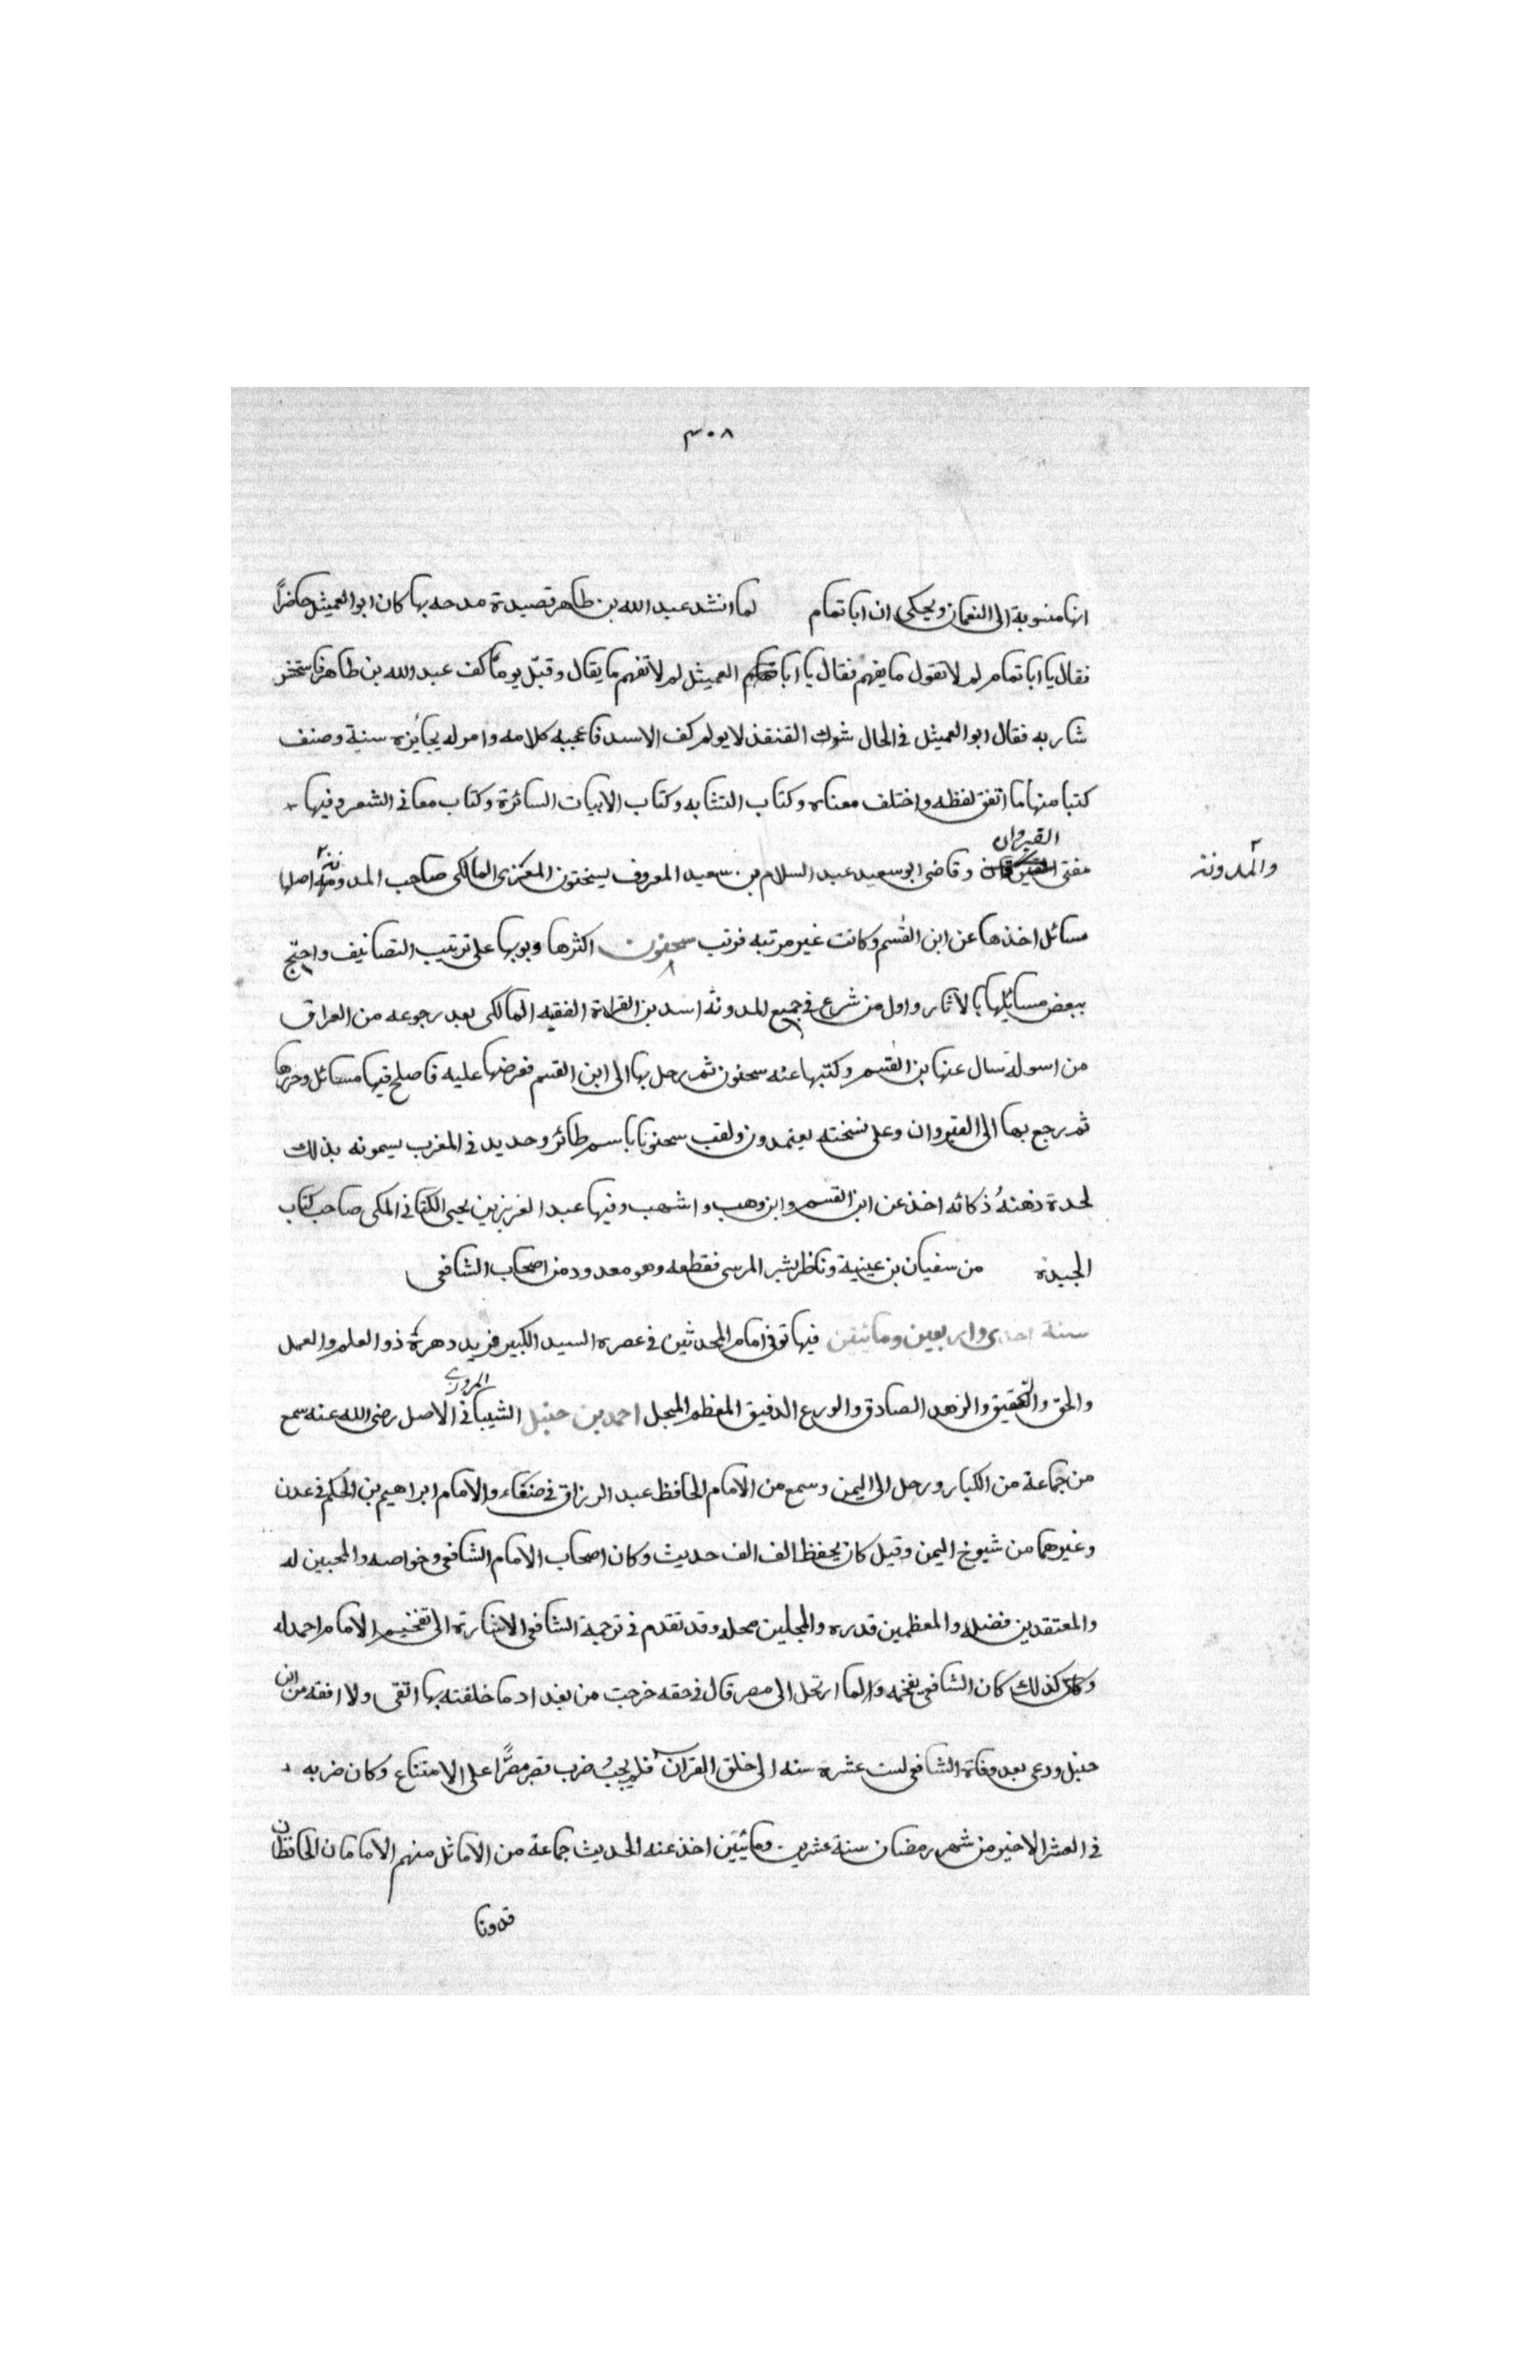 ٣٠٨
انها منسوبة الى النعمان ويحكى ان ابا تمام لما انشد عبد الله بن طاهر قصيدة مدحه بها كان ابو العميثل حاضراً
فقال يا ابا تمام لم لا تقول ما يفهم فقال يا ابا العميثل لم لا تفهم ما يقال وقبّل يوماً كف عبد الله بن طاهر فاستخشن
شاربه فقال ابو العميثل فى الحال شوك القنفذ لا يولم كف الاسد فاعجبه كلامه وامر له بجائزة سنية وصنف
كتبا منها ما اتفق لفظه واختلف معناه وكتاب التشابه وكتاب الابيات السائرة وكتاب معانى الشعر وفيها
مفتى القيروان وقاضى ابو سعيد عبد السلام بن سعيد المعروف بسحنون المالكى صاحب المدونة اصلها
والمدونة
مسائل اخذها عن ابن القسم وكانت غير مرتبه فرتب سحنون اكثرها وبوبها على ترتيب التصانيف واحتج
ببعض مسائلها بالاثار واول من شرع فى جميع المدونة اسد بن الفراة الفقيه المالكى بعد رجوعه من العراق
من اسولة سال عنها بن القسم وكتبها عنه سحنون ثم رحل بها الى ابن القسم فعرضها عليه فاصلح فيها مسائل وحررها
ثم رجع بها الى القيروان وعلى نسخته يعتمدون ولقب سحنونا باسم طائر وحديد فى المغرب يسمونه بذلك
لحدة ذهنه ذكائه اخذ عن ابن القسم وابن وهب واشهب وفيها عبد العزيز بن يحيى الكنانى المكى صاحب كتاب
الجيدة من سفيان بن عيينة وناظر بشر المرسى فقطعه وهو معدود من اصحاب الشافعى
سنة احدى واربعين ومائتين فيها توفى امام المحدثين فى عصره السيد الكبير فريد دهرة ذو العلم والعمل
والحق والتحقيق والزهد الصادق والورع الدقيق المعظم المبجل احمد بن حنبل الشيبانى المروزى الاصل رضى الله عنه سمع
من جماعة من الكبار ورحل الى اليمن وسمع من الامام الحافظ عبد الرزاق فى صنعاء والامام ابراهيم بن الحكم فى عدن
وغيرهما من شيوخ اليمن وقيل كان يحفظ الف الف حديث وكان اصحاب الامام الشافعى وخواصه والمحبين له
والمعتقدين فضله والمعظمين قدره والمجلين محله وقد تقدم فى ترجمة الشافعى الاشارة الى تفخيم الامام احمد له
وكان كذلك كان الشافعى يفخمه ولما ارتحل الى مصر قال فى حقه خرجت من بغداد ما خلفته بها اتقى ولا افقه من ابن
حنبل ودعى بعد وفاة الشافعى لست عشرة سنه الى خلق القران فلم يجب ضرب فصر مصرّا على الامتناع وكان ضربه
فى العشر الاخير من شهر رمضان سنة عشرين ومائتين اخذ عنه الحديث جماعة من الاماثل منهم الامامان الحافظان
قدوتا